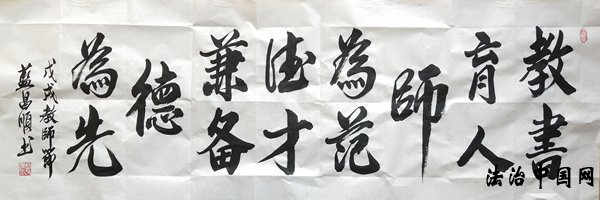 教書
育人
師
為范
德才
兼备
德
為先
戊戌教師節
藍昌順书
法治中国网